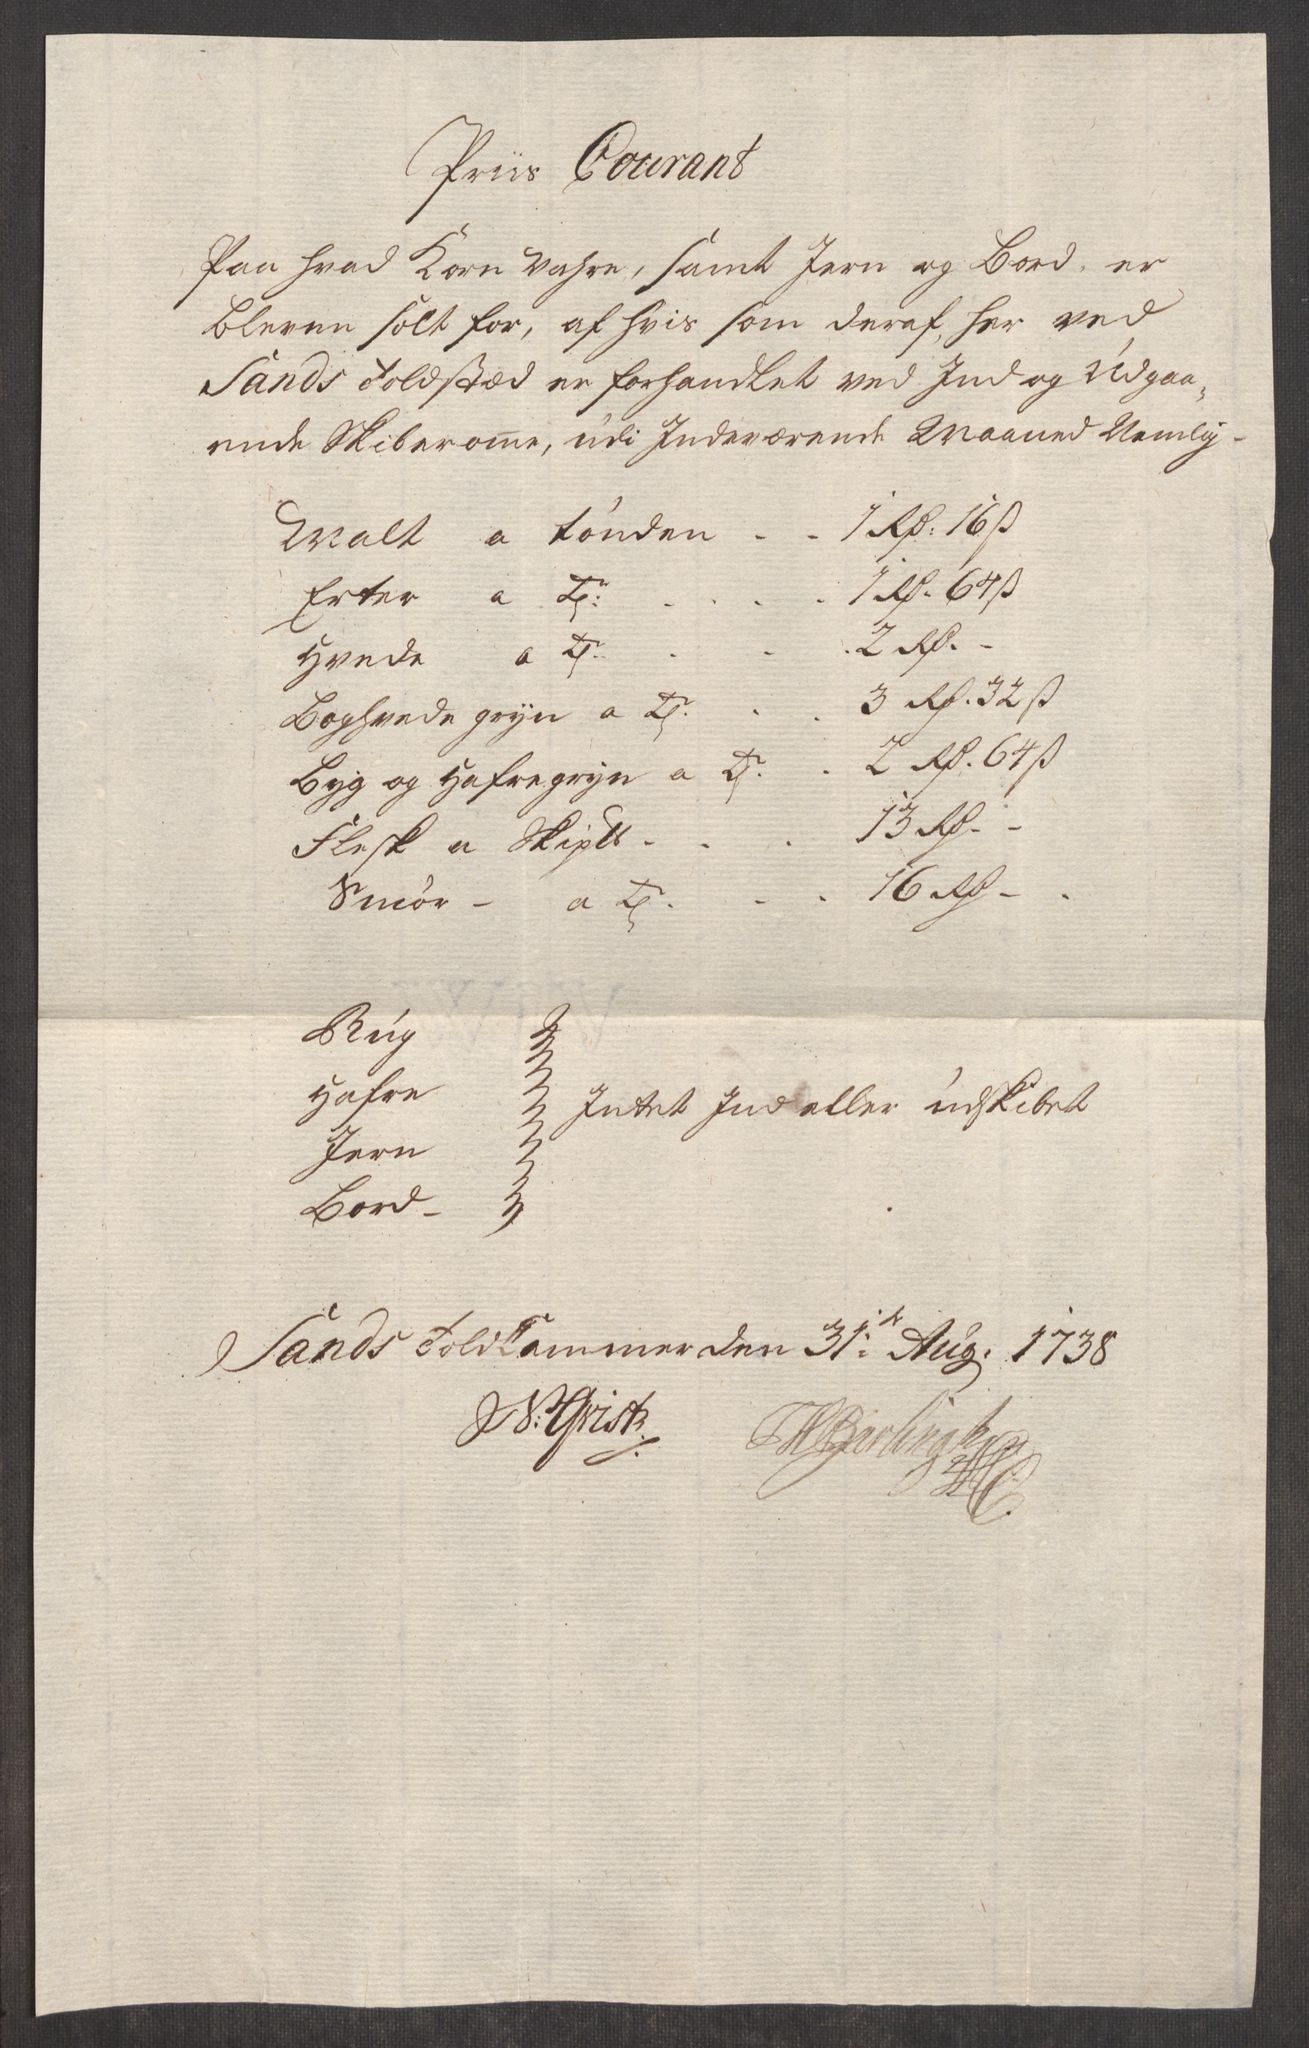 Priis Courant
Paa hvad Korn Vahre, samt Jern og Bord, er
bleven solt for, af hvis som deraf, her ved
Sands Toldstæd er forhandlet ved Ind og Udgaa,
ende Skiberomme, udi Indeværende Maaned Nemlig-
Malt a tønden - - 1 Rd: 16 ß
Erter a Tr: . . . . 1 Rd. 64 ß
Hvede a Tr. . - . 2 Rd. -
Boghvede gryn a Tr. . . 3 Rd. 32 ß
Byg og Hafregryn a Tr. . 2 Rd. 64 ß
Flesk a Skip℔ - . . 13 Rd - -
Smör - a Tr. - . 16 Rd - .
Rug
Hafre
Intet Ind eller udskibet
Jern
Bord -
Sands Told Cammer den 31: Aug. 1738